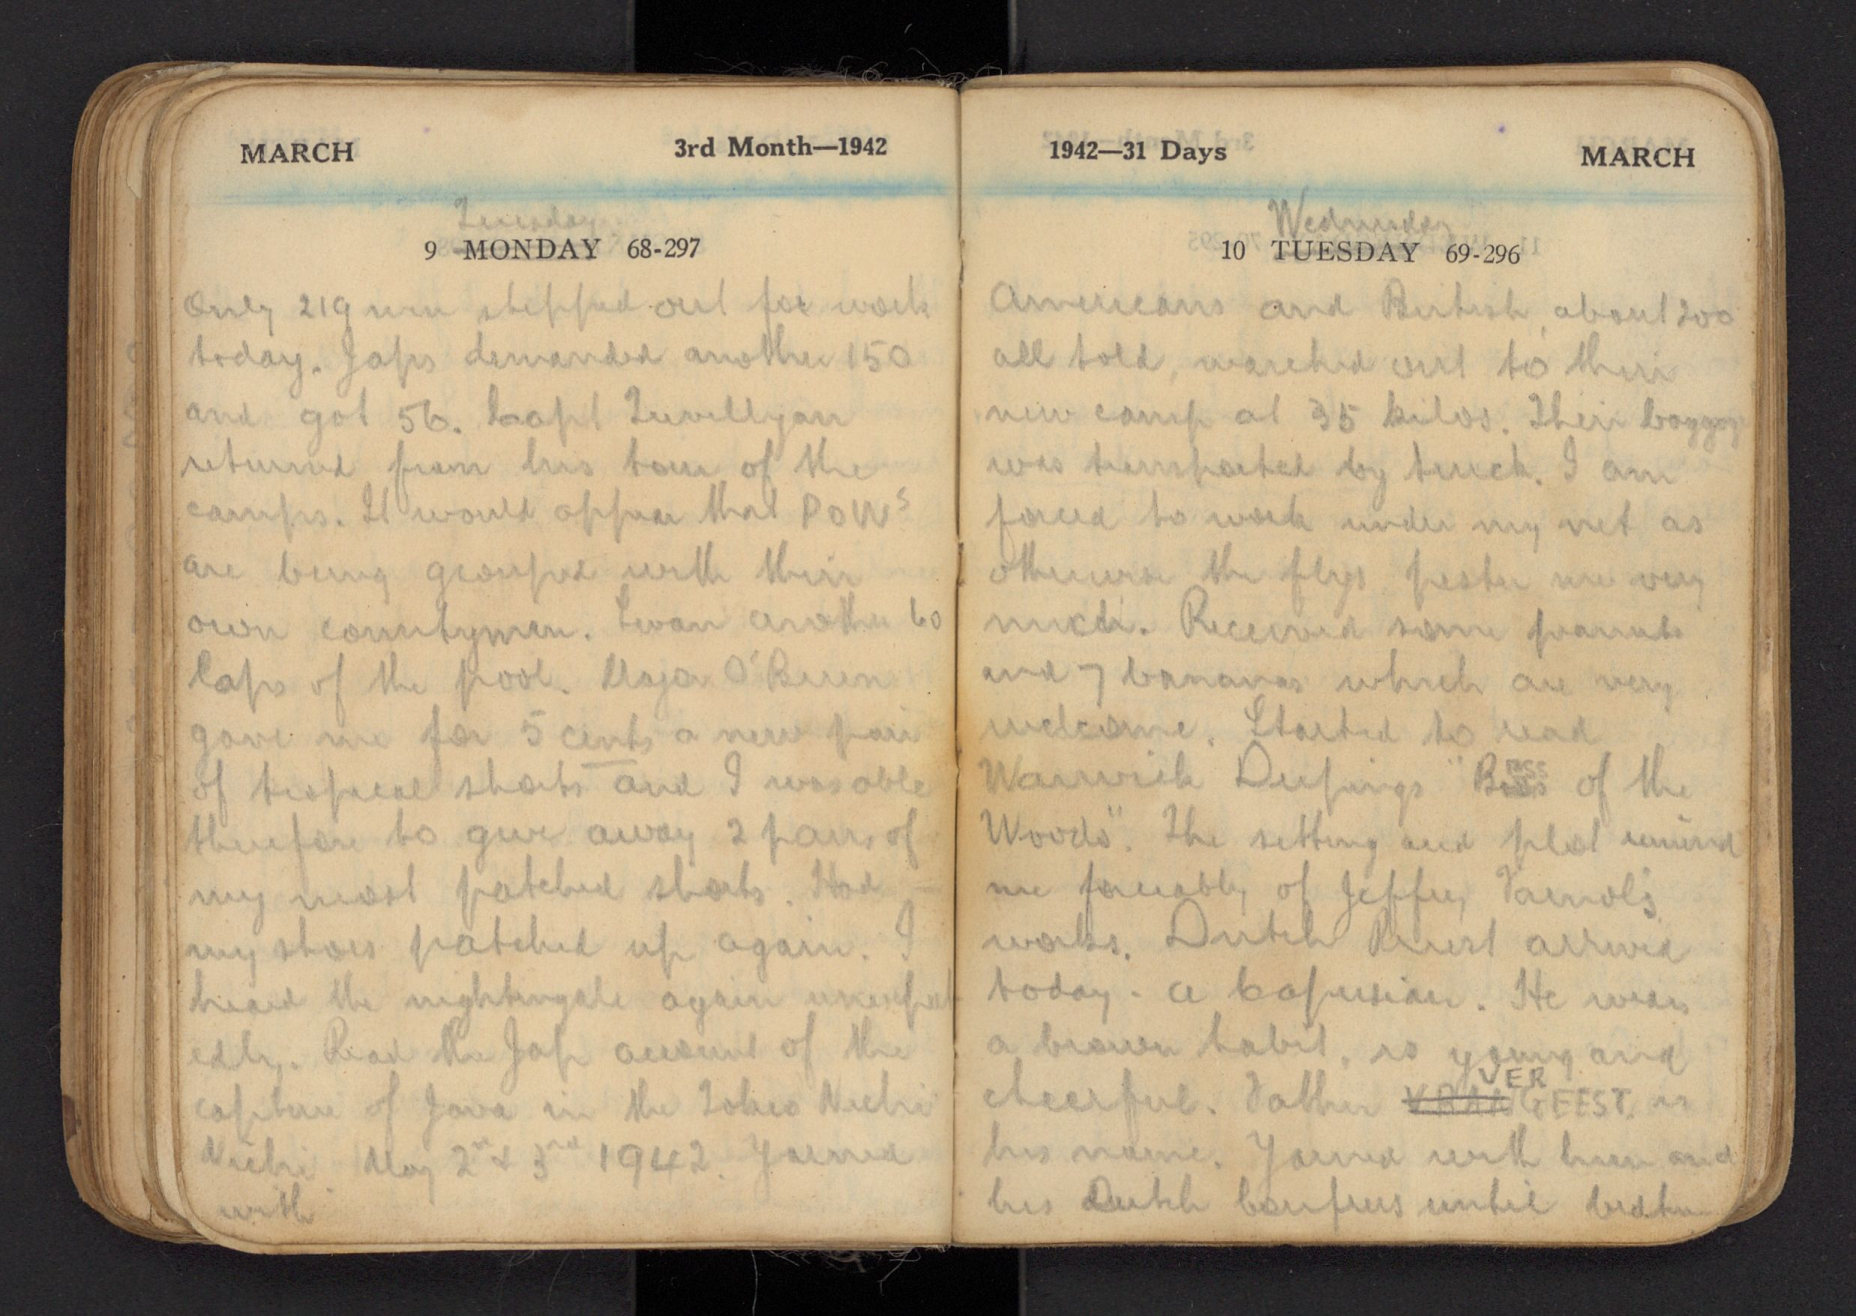 MARCH 3rd Month—1942
Tuesday
9 MONDAY 68-297
Only 219 men stepped out for work
today. Japs demanded another 150
and got 56. Capt
returned from his tour of the
camps. It would appear that POWs
are being grouped with their
own countrymen. Swam another 60
laps of the pool. Major O'Brien
gave me for 5 cents a new pair
of tropical shorts and I was able
therefore to give away 2 pairs of
my most patched shorts. Had
my shoes patched up again. I
heard the nightingale again unexpect
edly. Read the Jap account of the
capture of Java in the Tokio Nichi
Nichi May 2nd & 3rd 1942. Yarned
with
1942—31 Days MARCH
Wednesday
10 TUESDAY 69-296
Americans and British, about 200
all told, marched out to their
new camp at 35 kilos. Their baggage
was transported by truck. I am
forced to work under my net as
otherwise the flys pester me very
much. Received some peanuts
and 7 bananas which are very
welcome. Started to read
Warwick Deepings "Bess of the
Woods". The setting and plot remind
me forceably of Jeffery Farnol's
works. Dutch Priest arrived
today - a Capucian. He wears
a brown habit, is young and
VER
cheerful. Father VRANGEEST is
his name. Yarned with him and
his Dutch confrers until bedtime